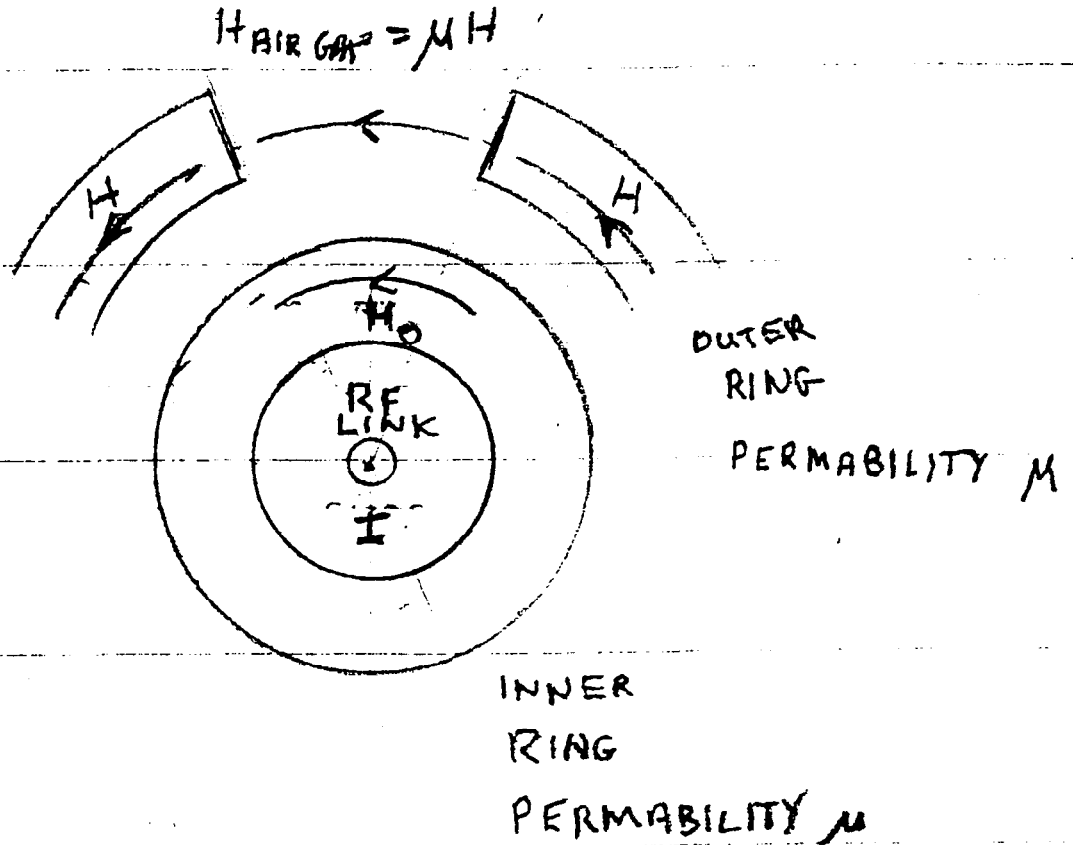 H AIR GAP = μ H
H
H
H₀
RF
LINK
I
OUTER
RING
PERMABILITY μ
INNER
RING
PERMABILITY μ